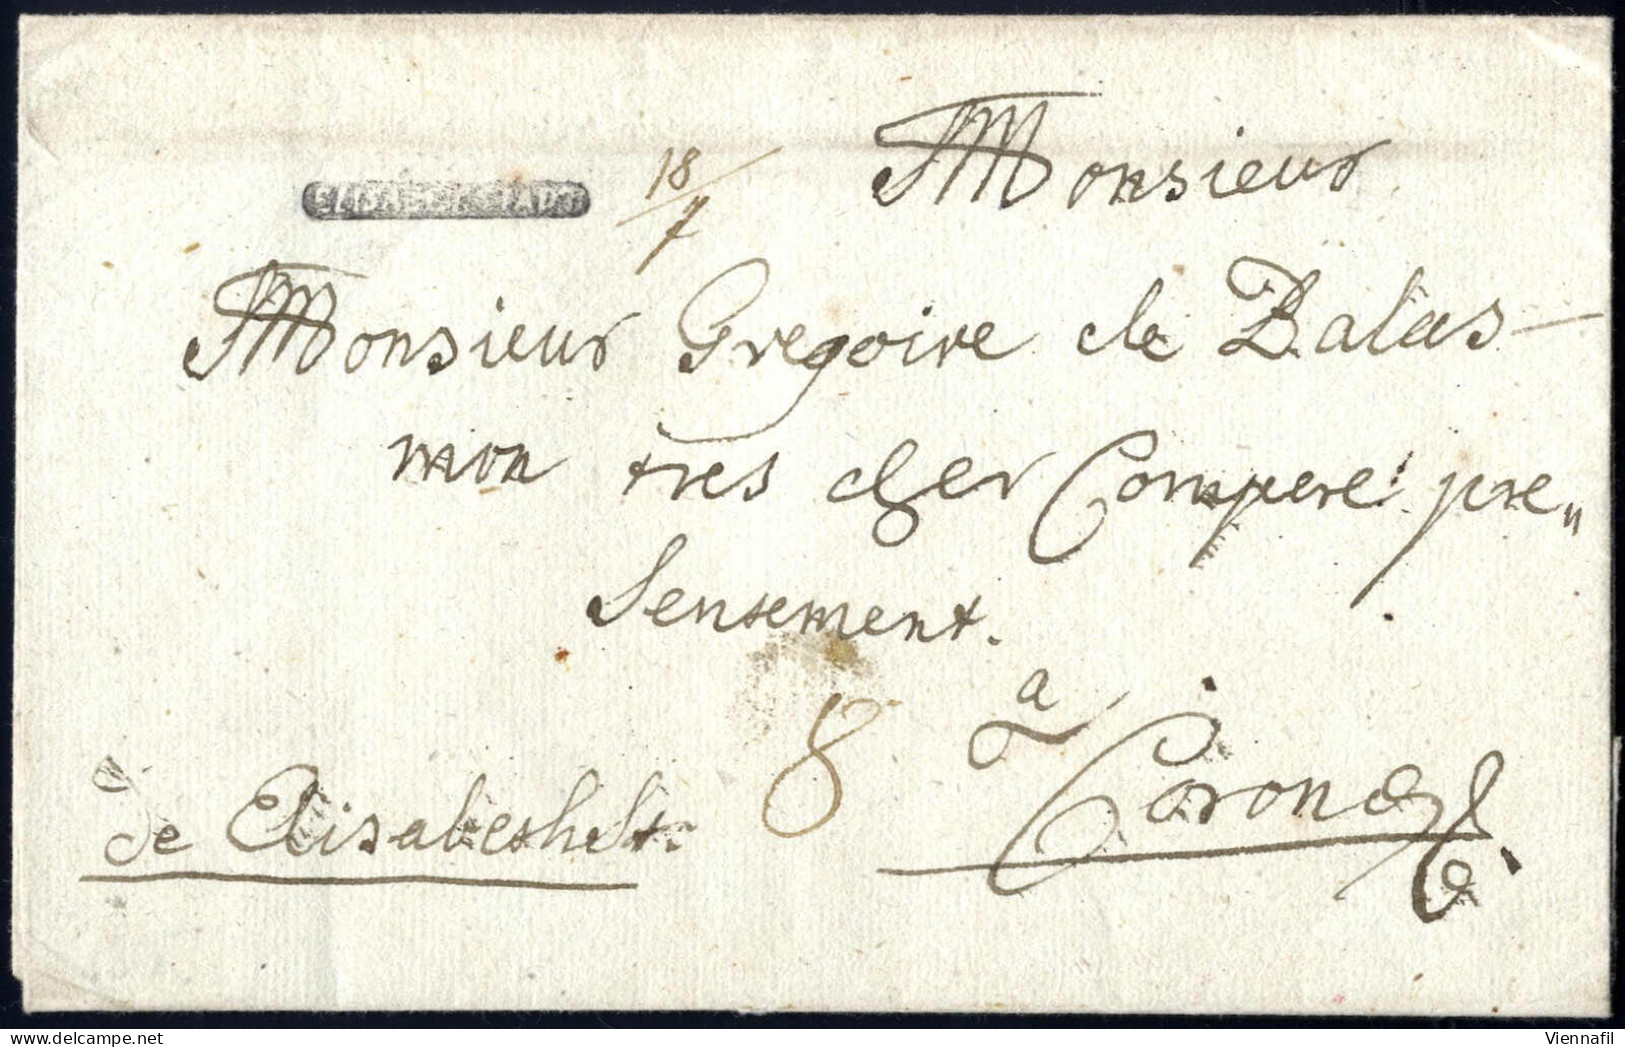 ELISABETHSTADT
18/7
Monsieur
Monsieur Gregoire de Balas
mon tres cher Compere pre„
sentement.
a
8
de Elisabethst.
Viennafil